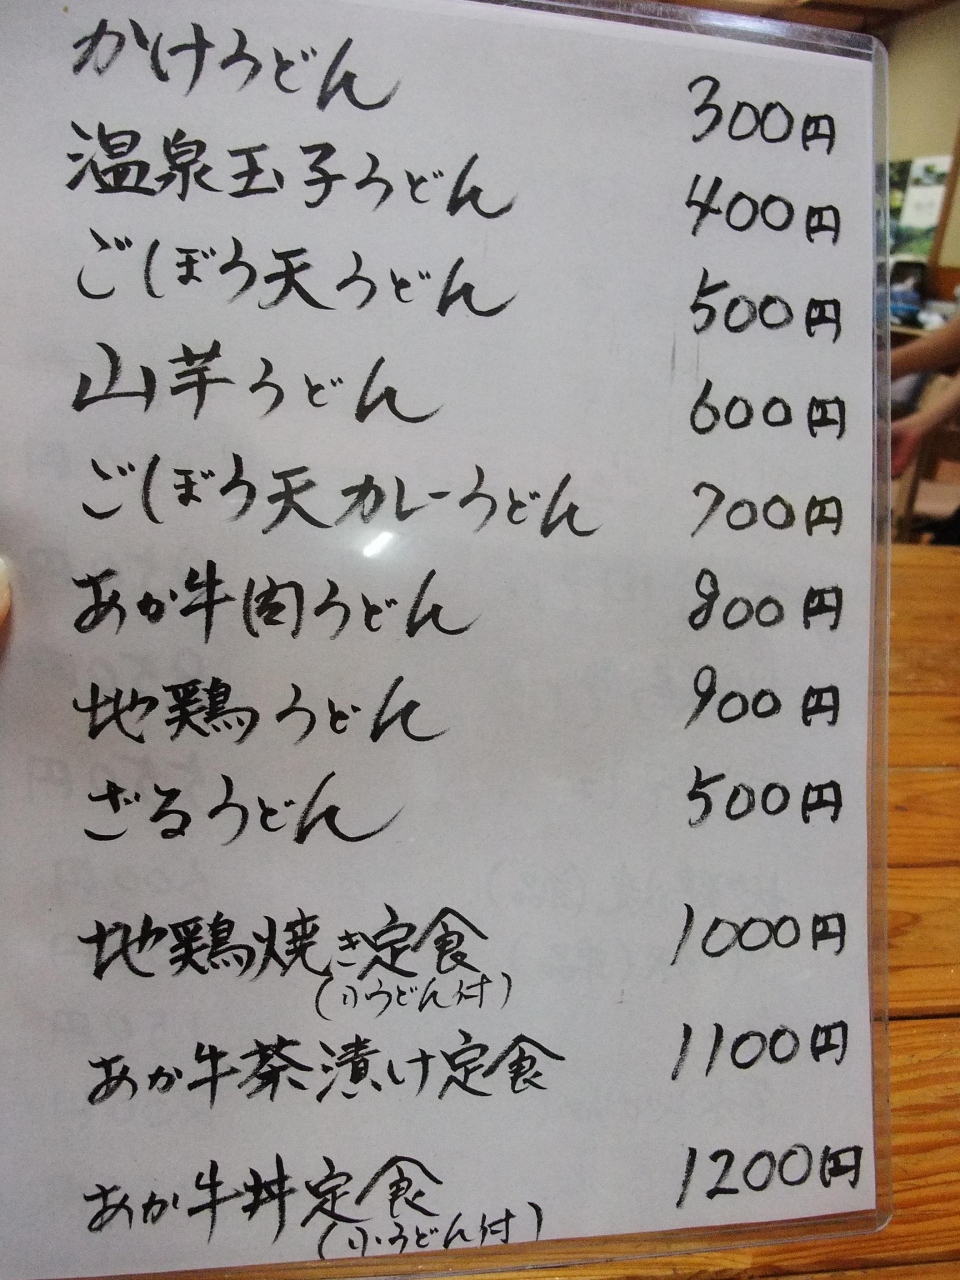 かけうどん 300円
温泉玉子うどん 400円
ごぼう天うどん 500円
山芋うどん 600円
ごぼう天カレーうどん 700円
あか牛肉うどん 800円
地鶏うどん 900円
ざるうどん 500円
地鶏焼き定食 1000円
(小うどん付)
あか牛茶漬け定食 1100円
あか牛丼定食 1200円
(小うどん付)